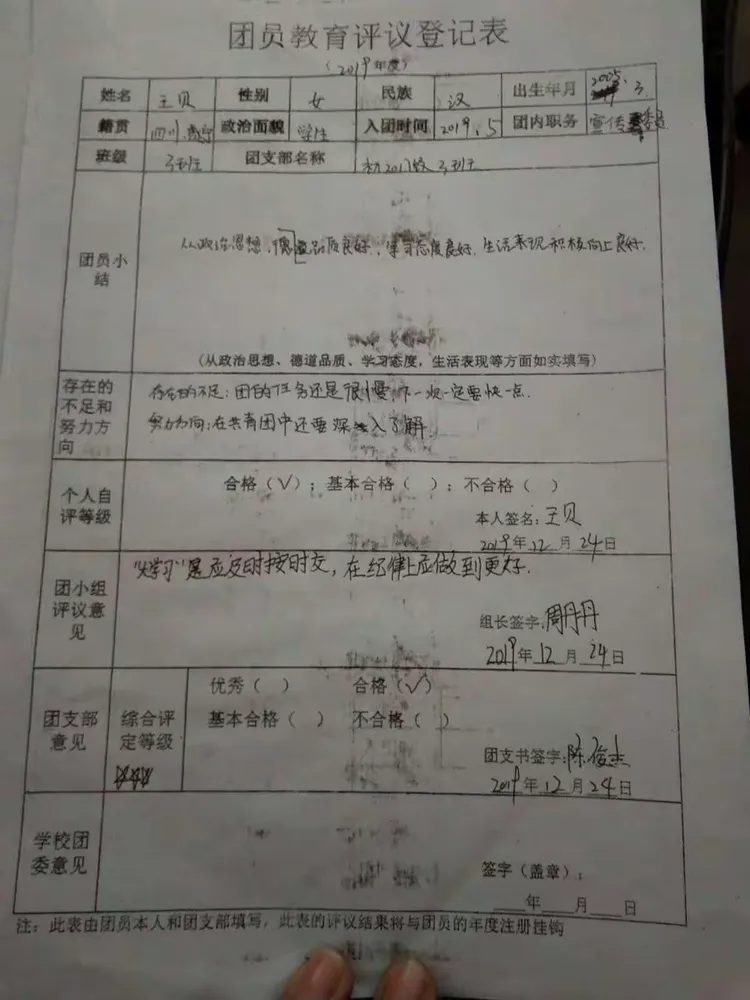 团员教育评议登记表
(2019年度)
姓名 王贝 性别 女 民族 汉 出生年月 2005. 3.
籍贯 四川 政治面貌 学生 入团时间 2019.5 团内职务 宣传委员
班级 3班 团支部名称 初2017级3班
团员小结
从政治思想,德道品质良好,学习态度良好,生活表现积极向上良好.
(从政治思想、德道品质、学习态度,生活表现等方面如实填写)
存在的不足和努力方向
存在的不足:团的任务还是很慢,下一次一定要快一点.
努力方向:在共青团中还要深入了解.
个人自评等级
合格(√);基本合格( );不合格( )
本人签名:王贝
2019年12月24日
团小组评议意见
"大学习"是应及时按时交,在纪律上应做到更好.
组长签字:周丹丹
2019年12月24日
团支部意见 综合评定等级
优秀( ) 合格(√)
基本合格( ) 不合格( )
团支书签字:陈俊杰
2019年12月24日
学校团委意见
签字(盖章):
年 月 日
注:此表由团员本人和团支部填写,此表的评议结果将与团员的年度注册挂钩